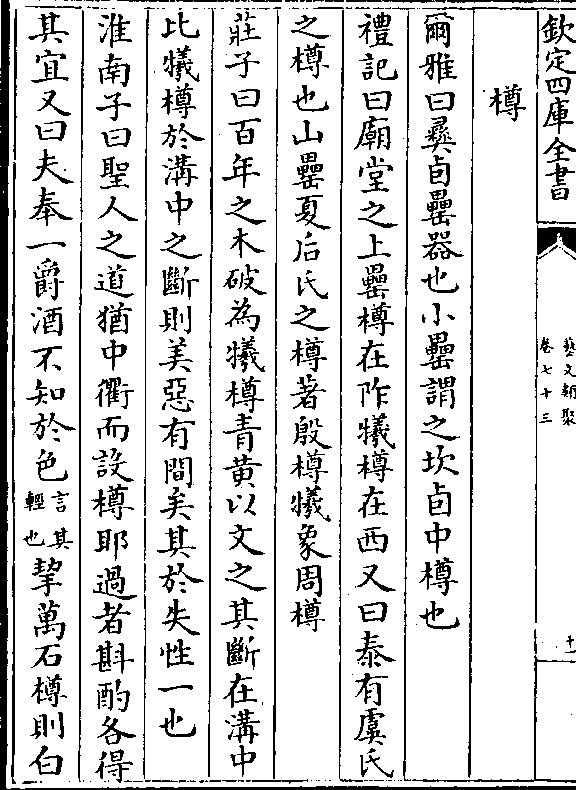 欽定四庫全書
藝文類聚
卷七十三
十一
樽
爾雅曰彛卣罍器也小罍謂之坎卣中樽也
禮記曰廟堂之上罍樽在阼犧樽在西又曰泰有虞氏
之樽也山罍夏后氏之樽著殷樽犧象周樽
莊子曰百年之木破為犧樽青黄以文之其斷在溝中
比犧樽於溝中之斷則美惡有間矣其於失性一也
淮南子曰聖人之道猶中衢而設樽耶過者斟酌各得
其宜又曰夫奉一爵酒不知於色言其輕也挈萬石樽則白